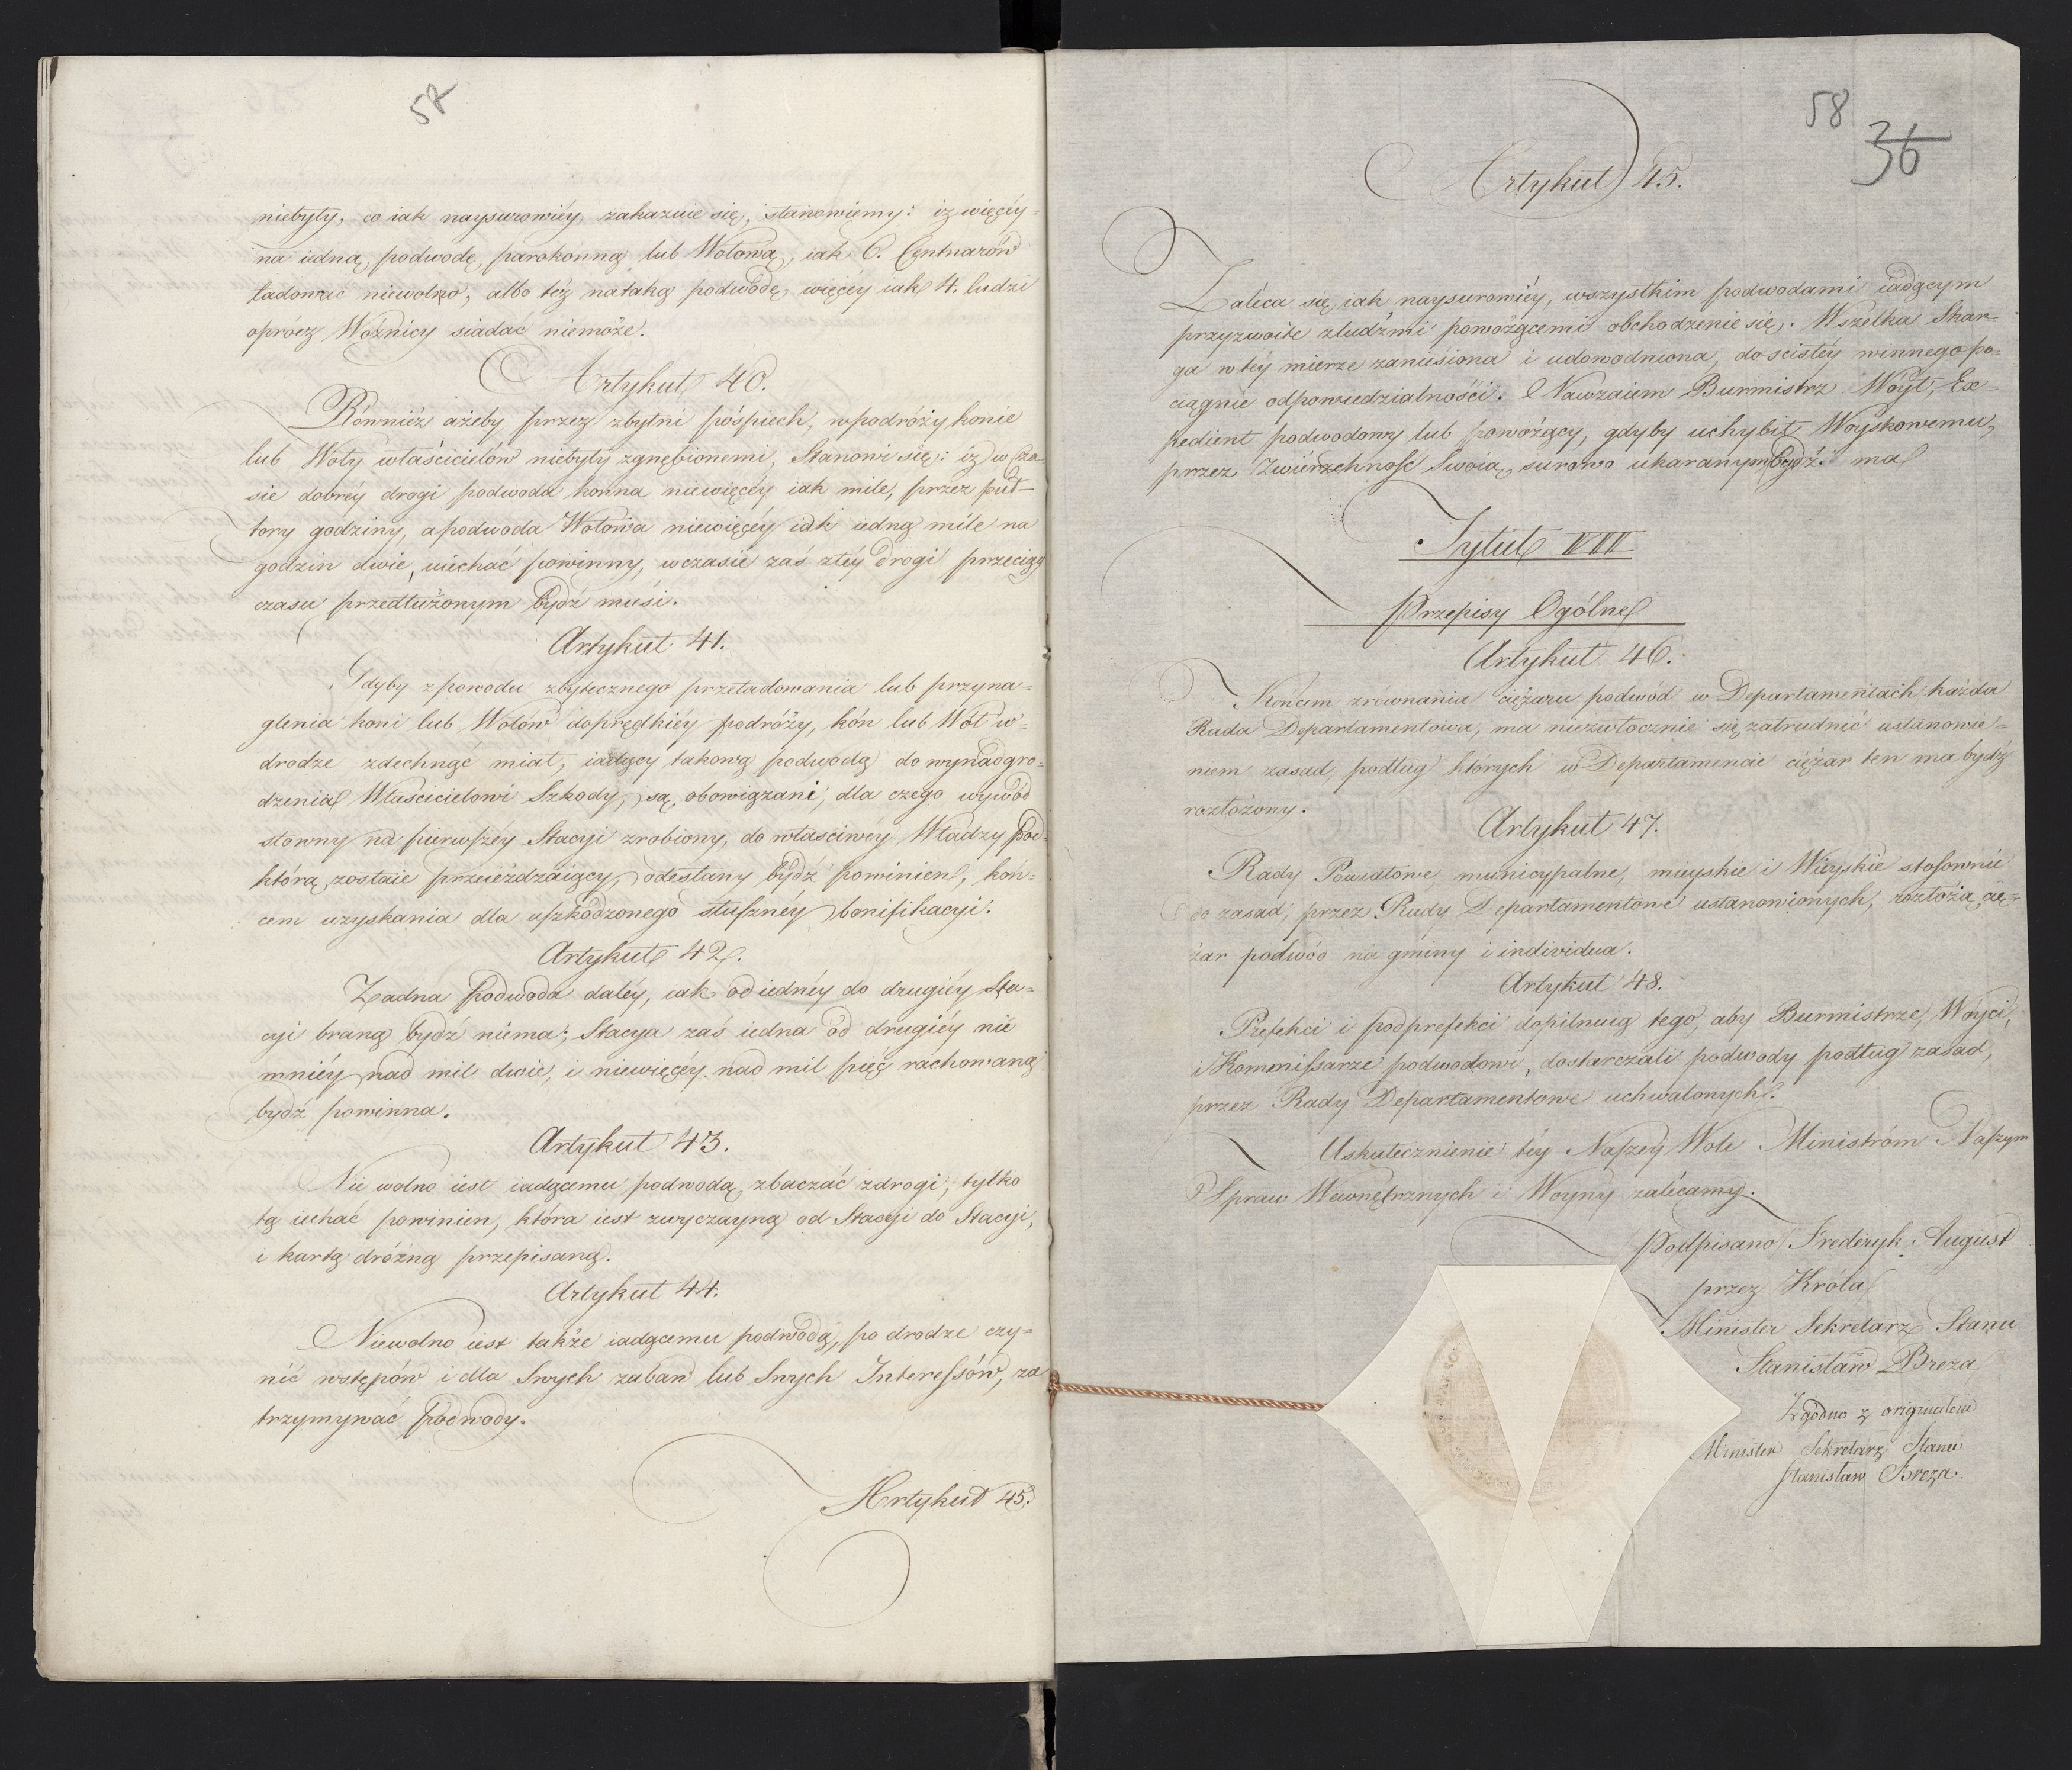 57
niebyły, co iak naysurowiéy zakazuie się, stanowiemy: iż więcéy=
na iedną podwodę, parokonną lub Wołową, iak 6. Centnarów
ładować niewolno, albo téż nataką podwodę, więcéy iak 4. ludzi
oprócz Woźnicy siadać niemoże.
Artykuł 40.
Również ażeby przez zbytni póśpiech, wpodróży, konie
lub Woły właścicielów niebyły zgnębionemi, Stanowi się: iż w Cza-
sie dobréy drogi podwoda konna niewięcéy iak mile, przez puł-
tory godziny, apodwoda Wołowa niewięcéy iak iedną mile na
godzin dwie, uiechać powinny, wczasie zaś złéy drogi przeciąg
czasu przedłużonym bydź musi.
Artykuł 41.
Gdyby z powodu zbytecznego przeładowania lub przyna=
glenia koni lub Wołów doprędkiéy podróży, kóń lub Wół w-
drodze zdechnąć miał, iadący takową podwodą do wynadgro-
dzenia Właścicielowi Szkody, są obowiązani, dla czego wywód
słowny na pierwszéy Stacyi zrobiony, do właściwéy Władzy pod-
którą zostaie przeieżdzaiący, odesłany bydź powinien, koń-
cem uzyskania dla uszkodzonego słusznéy bonifikacyi.
Artykuł 42.
Żadna podwoda daléy, iak od iednéy do drugiéy Sta=
cyi braną bydź niema; Stacya zaś iedna od drugiéy nie
mniéy nad mil dwie, i niewięcéy nad mil pięć rachowaną
bydź powinna.
Artykuł 43.
Nie wolno iest iadącemu podwodą zbaczać zdrogi, tylko
tą iechać powinien, która iest zwyczayną od Stacyi do Stacyi,
i kartą dróżną przepisaną.
Artykuł 44.
Niewolno iest także iadącemu podwodą, po drodze czy=
nić wstępów i dla Swych zabaw lub Swych Interessów, za
trzymywać podwody.
Artykuł 45.
58
36
Artykuł 45.
Zaleca się, iak naysurowiéy, wszystkim podwodami iadącym
przyzwoite zludźmi powożącemi obchodzenie się. Wszelka Skar-
ga wtéy mierze zaniesiona i udowodniona, do scisłéy winnego po-
ciągnie odpowiedzialności. Nawzaiem Burmistrz Wóyt, Ex-
pedient podwodowy lub powożący, gdyby uchybił Woyskowemu,
przez Zwierzchność Swoią, surowo ukaranym bydź ma
Tytuł VIII
Przepisy Ogólne
Artykuł 46.
Końcem zrównania ciężaru podwód w Departamentach każda
Rada Departamentowa, ma niezwłocznie się zatrudnić ustanowie-
niem zasad, podług których w Departamencie ciężar ten ma bydź
rozłożony.
Artykuł 47.
Rady Powiatowe, municypalne, mieyskie i Wieyskie stosownie
do zasad, przez Rady Departamentowe ustanowionych, rozłożą cię=
żar podwód na gminy i individua.
Artykuł 48.
Prefekci i podprefekci dopilnuią tego, aby Burmistrze, Wóyci,
i Kommissarze podwodowi, dostarczali podwody podług zasad,
przez Rady Departamentowe uchwalonych.
Uskutecznienie téy Naszéy Woli Ministróm Naszym
Spraw Wewnętrznych i Woyny zalécamy.
Podpisano Frederyk August
przez Króla
Minister Sekretarz Stanu
Stanisław Breza
Zgodno z originałem
Minister Sekretarz Stanu
Stanisław Breza.